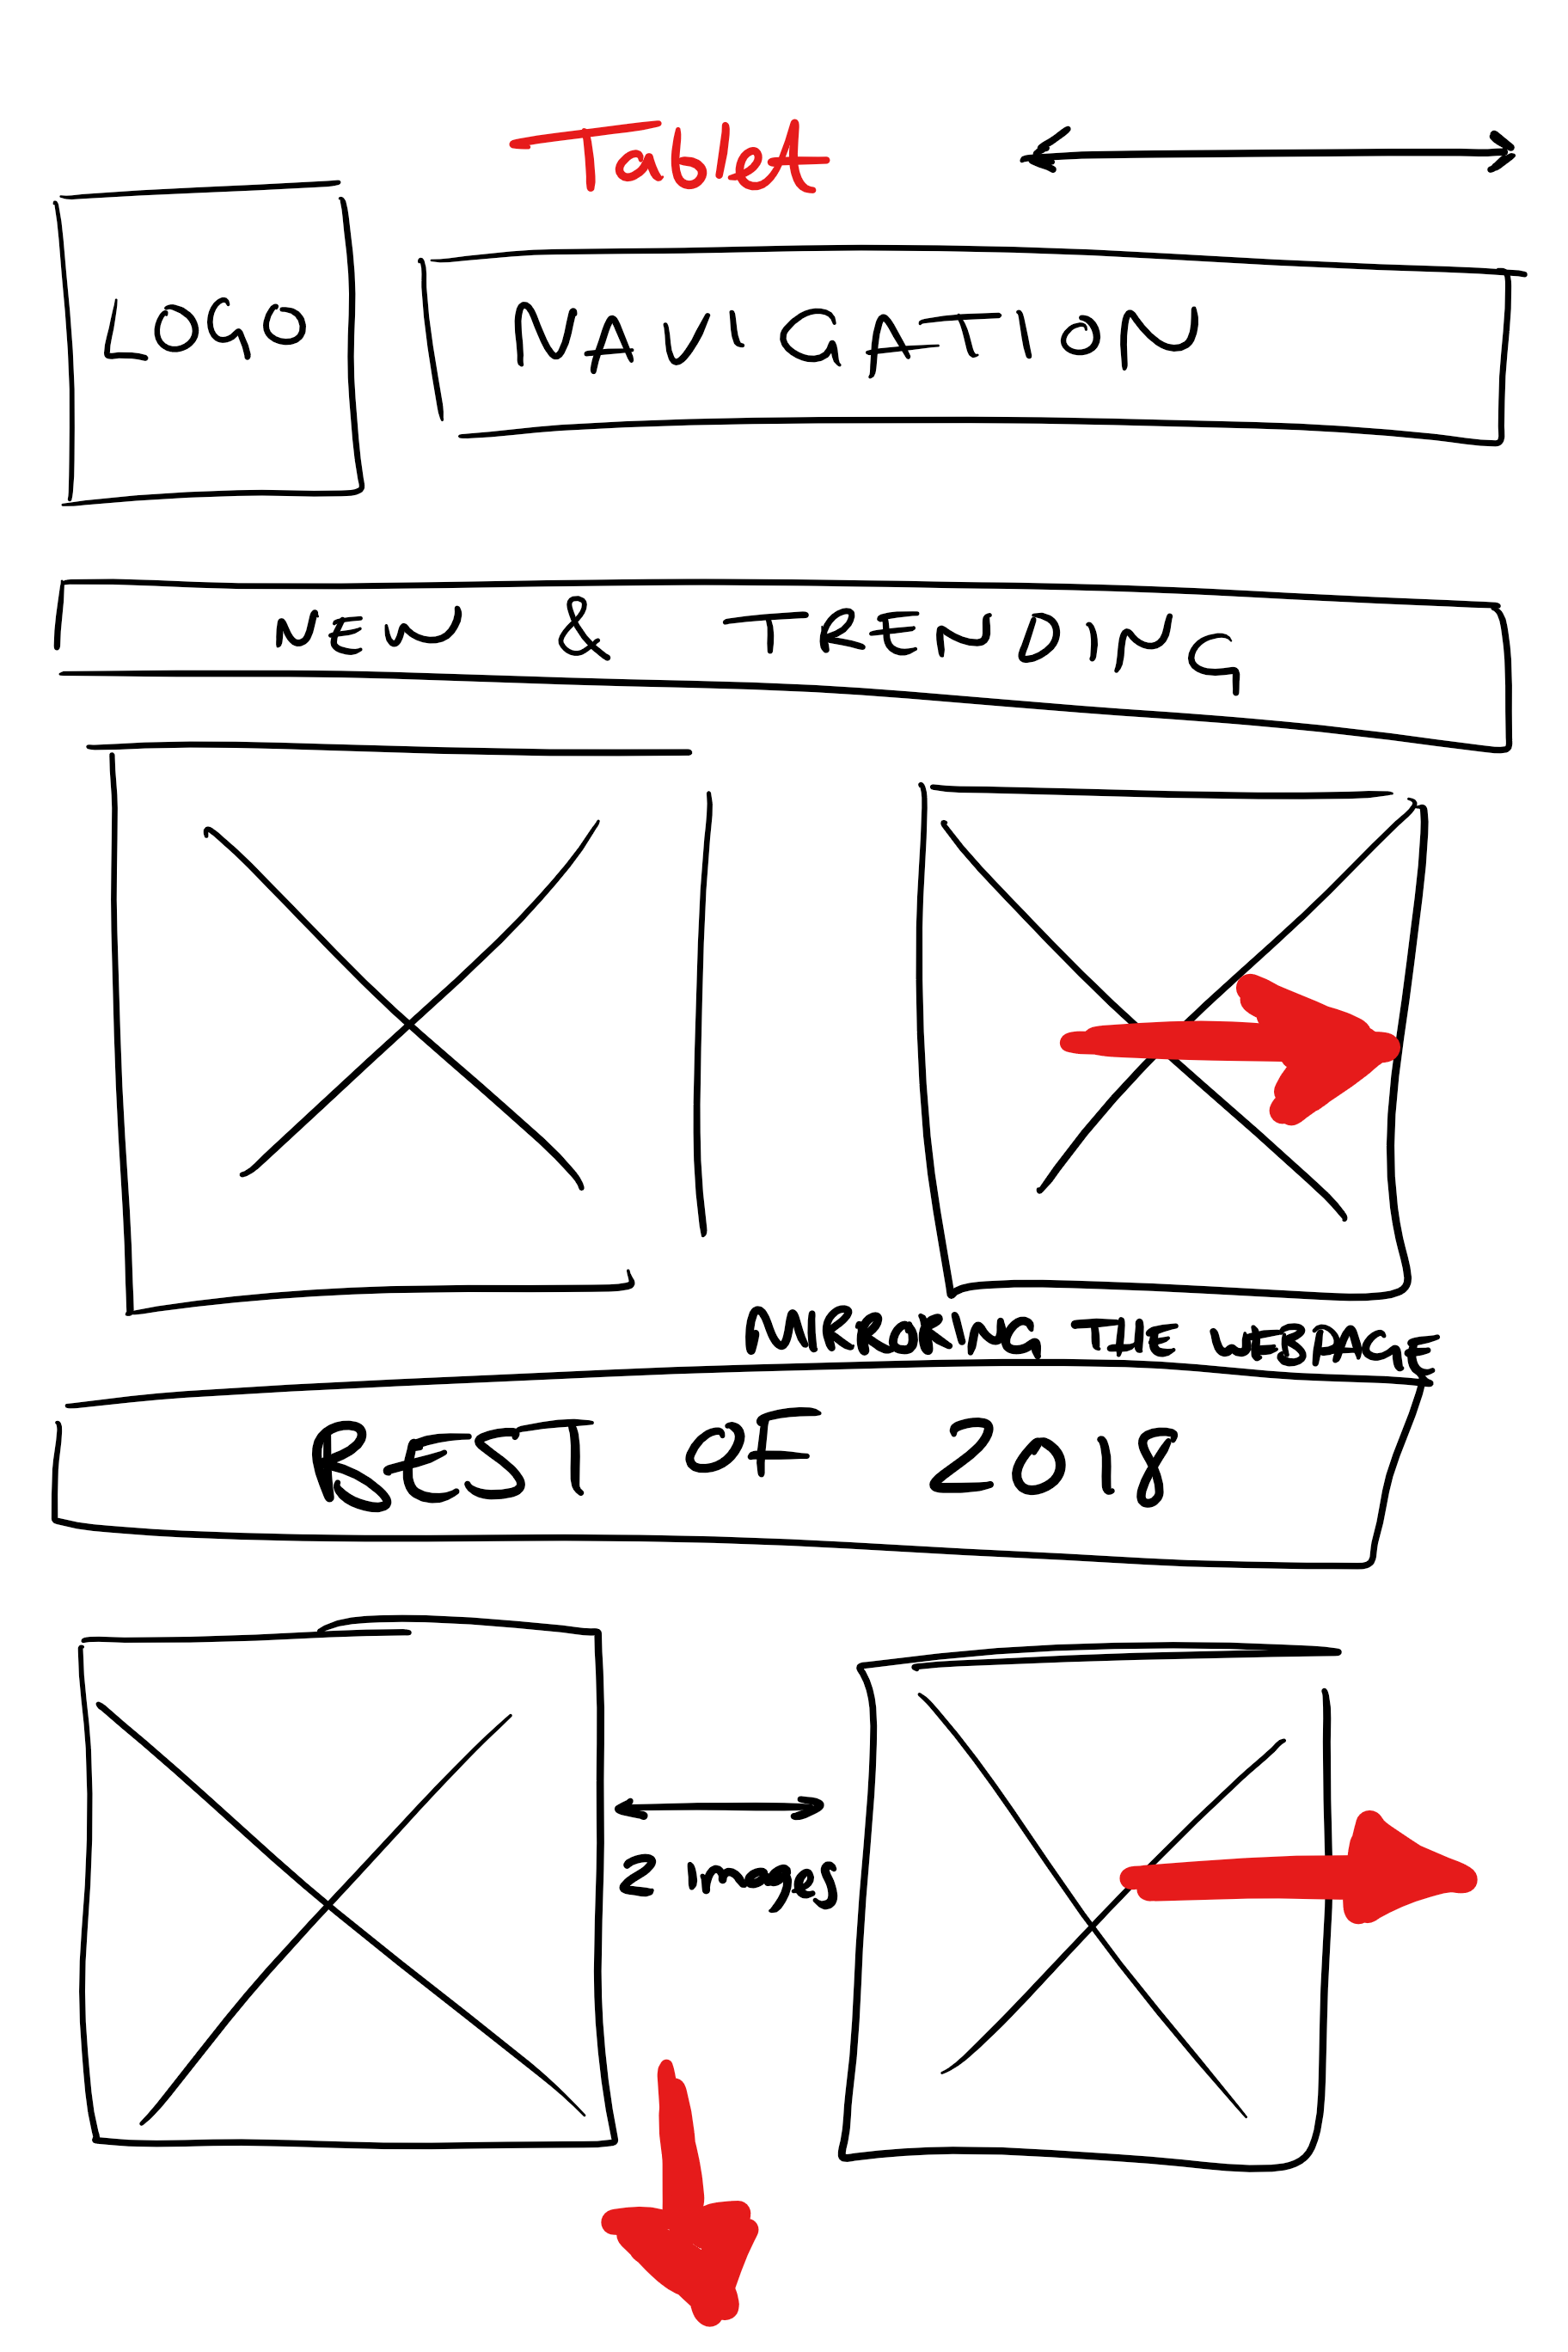 Tablet
LOGO
NAVIGATION
NEW & TRENDING
MIRRORING THE WEBPAGE
BEST OF 2018
2 images